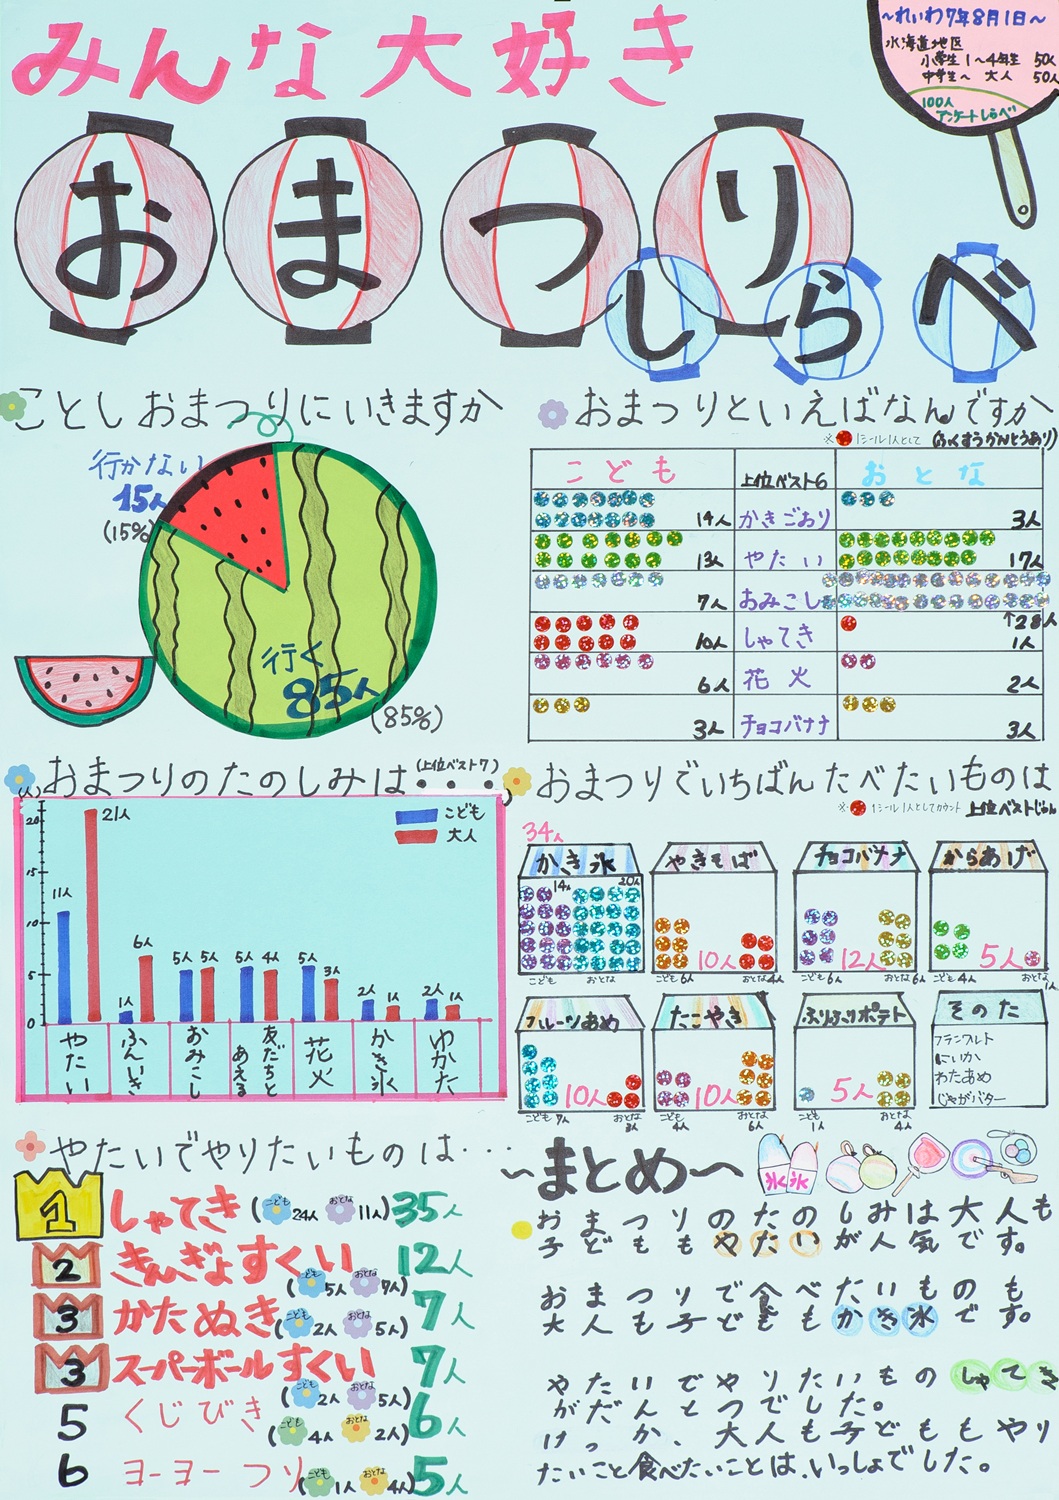 みんな大好き
おまつり
しらべ
〜れいわ7年8月1日〜
水海道地区
小学生1〜4年生 50人
中学生〜大人 50人
100人
アンケートしらべ
ことしおまつりにいきますか
行かない
15人
(15%)
行く
85人
(85%)
おまつりといえばなんですか
※ 1シール1人として (ふくすうかいとうあり)
こども 上位ベスト6 おとな
14人 かきごおり 3人
13人 やたい 17人
7人 おみこし ↑28人
10人 しゃてき 1人
6人 花火 2人
3人 チョコバナナ 3人
おまつりのたのしみは・・・
(上位ベスト7)
(人)
20
15
10
5
0
こども
大人
11人 21人
1人 6人
5人 5人
5人 4人
5人 3人
2人 1人
2人 1人
やたい
ふんいき
おみこし
友だちとあえる
花火
かき氷
ゆかた
おまつりでいちばんたべたいものは
※ 1シール1人としてカウント 上位ベストじゅん
34人
かき氷
14人 20人
こども おとな
やきそば
10人
こども6人 おとな4人
チョコバナナ
12人
こども6人 おとな6人
からあげ
5人
こども4人 おとな1人
フルーツあめ
10人
こども7人 おとな3人
たこやき
10人
こども4人 おとな6人
ふりふりポテト
5人
こども1人 おとな4人
そのた
フランクルト
にいか
わたあめ
じゃがバター
やたいでやりたいものは・・・
1 しゃてき (こども24人 おとな11人) 35人
2 きんぎょすくい 12人
(こども5人 おとな7人)
3 かたぬき (こども2人 おとな5人) 7人
3 スーパーボールすくい 7人
(こども2人 おとな5人)
5 くじびき (こども4人 おとな2人) 6人
6 ヨーヨーつり (こども1人 おとな4人) 5人
〜まとめ〜
氷 氷
おまつりのたのしみは大人も
子どももやたいが人気です。
おまつりで食べたいものも
大人も子どももかき氷です。
やたいでやりたいものしゃてき
がだんとつでした。
けっか、大人も子どももやり
たいこと食べたいことは、いっしょでした。